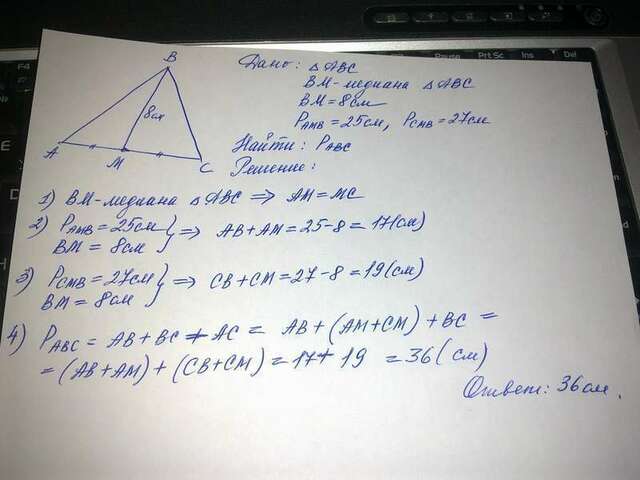 F4
Pause
Prt Sc
Ins
Del
B
8см
A
M
C
Дано: △ABC
BM-медиана △ABC
BM=8см
P_AMB=25см, P_CMB=27см
Найти: P_ABC
Решение:
1) BM-медиана △ABC ⇒ AM=MC
2) P_AMB=25см
BM=8см } ⇒ AB+AM=25-8=17(см)
3) P_CMB=27см
BM=8см } ⇒ CB+CM=27-8=19(см)
4) P_ABC = AB+BC+AC = AB+(AM+CM)+BC =
=(AB+AM)+(CB+CM)=17+19 =36(см)
Ответ: 36см.